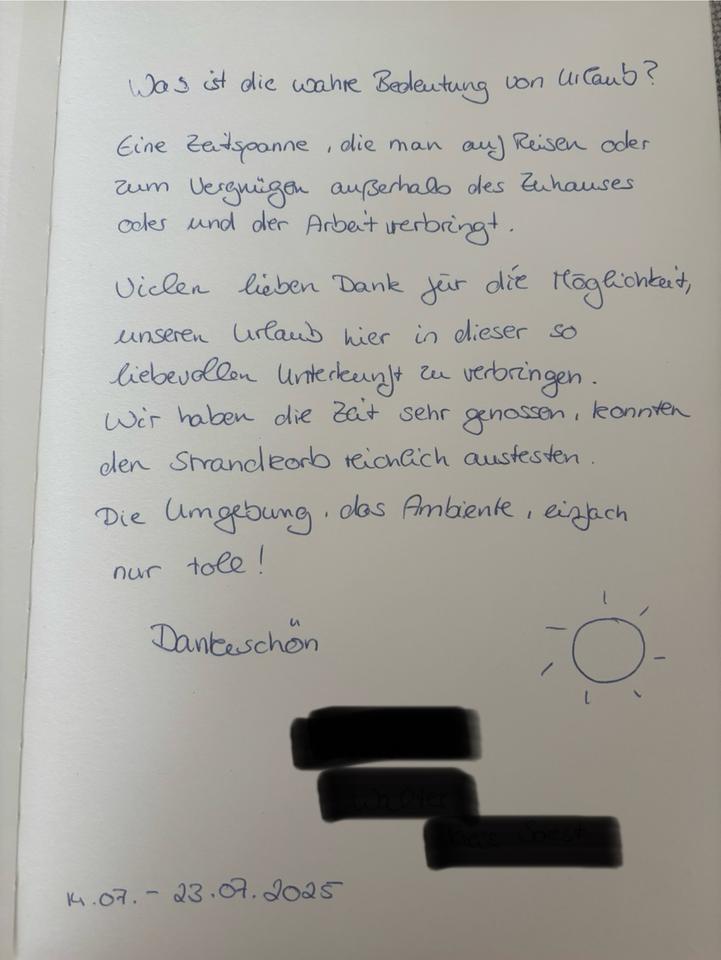 Was ist die wahre Bedeutung von Urlaub?
Eine Zeitspanne, die man auf Reisen oder
zum Vergnügen außerhalb des Zuhauses
oder und der Arbeit verbringt.
Vielen lieben Dank für die Möglichkeit,
unseren Urlaub hier in dieser so
liebevollen Unterkunft zu verbringen.
Wir haben die Zeit sehr genossen, konnten
den Strandkorb reichlich austesten.
Die Umgebung, das Ambiente, einfach
nur tole!
Dankeschön
14.07. - 23.07.2025